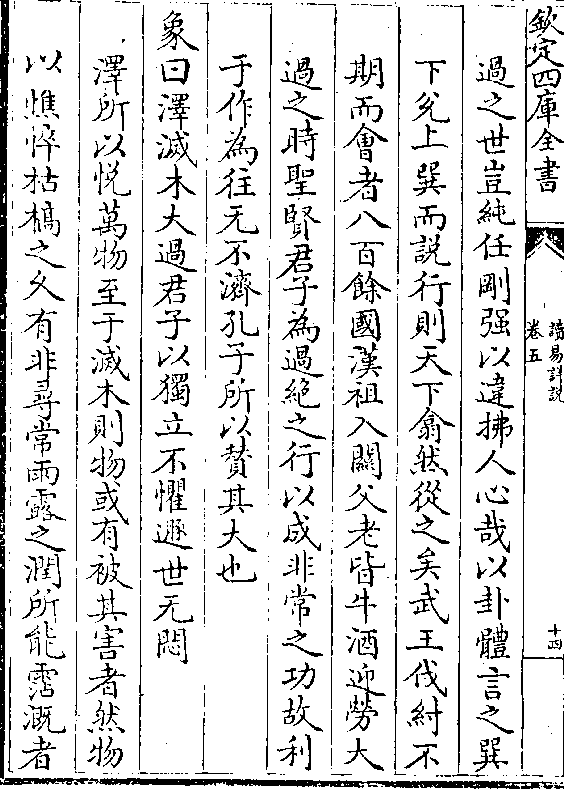 欽定四庫全書
讀易詳說
卷五
十四
過之世豈純任剛强以違拂人心哉以卦體言之巽
下兊上巽而説行則天下翕然從之矣武王伐紂不
期而會者八百餘國漢祖入關父老皆牛酒迎勞大
過之時聖賢君子為過絶之行以成非常之功故利
于作為往无不濟孔子所以賛其大也
象曰澤滅木大過君子以獨立不懼遯世无悶
澤所以悦萬物至于滅木則物或有被其害者然物
以憔悴枯槁之久有非尋常雨露之潤所能霑溉者